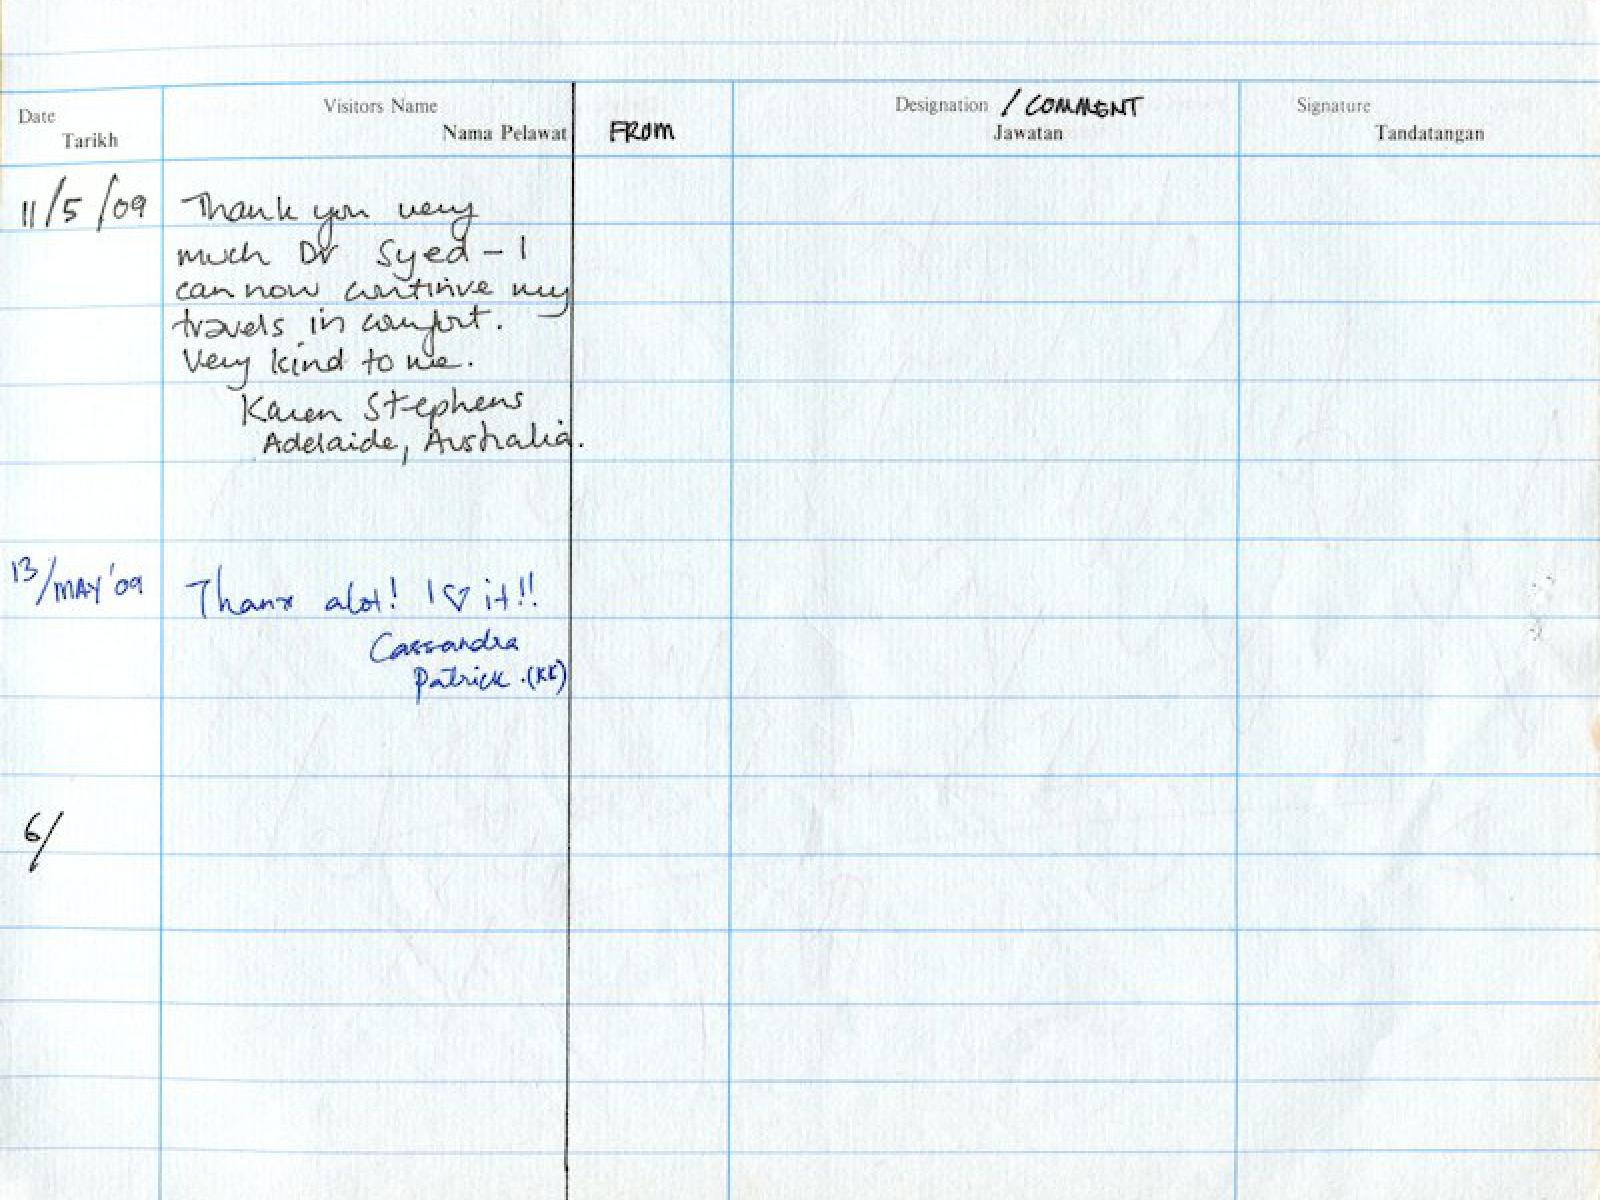 Date Visitors Name Designation / COMMENT Signature
Tarikh Nama Pelawat FROM Jawatan Tandatangan
11/5/09 Thank you very
much Dr Syed - I
can now continue my
travels in comfort.
Very kind to me.
Karen Stephens
Adelaide, Australia.
13/MAY'09 Thanx alot! I ♡ it!!
Cassandra
Patrick.(KK)
6/